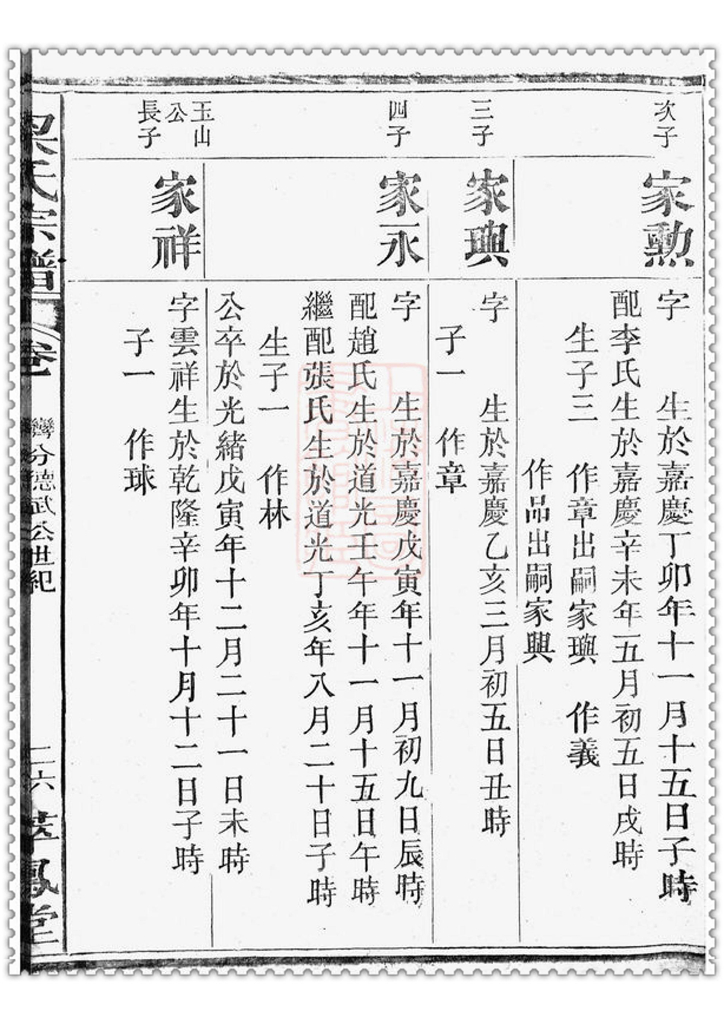 次子
家勲
字　　生於嘉慶丁卯年十一月十五日子時
配李氏生於嘉慶辛未年五月初五日戌時
生子三　作章出嗣家璵　作義
作品出嗣家興
三子
家璵
字　　生於嘉慶乙亥三月初五日丑時
子一　作章
四子
家永
字　　生於嘉慶戊寅年十一月初九日辰時
配趙氏生於道光壬午年十一月十五日午時
繼配張氏生於道光丁亥年八月二十日子時
生子一　作林
公卒於光緒戊寅年十二月二十一日未時
玉山
公
長子
家祥
字雲祥生於乾隆辛卯年十月十二日子時
子一　作球
氏宗譜
卷
分德武公世紀
二六
鳳堂